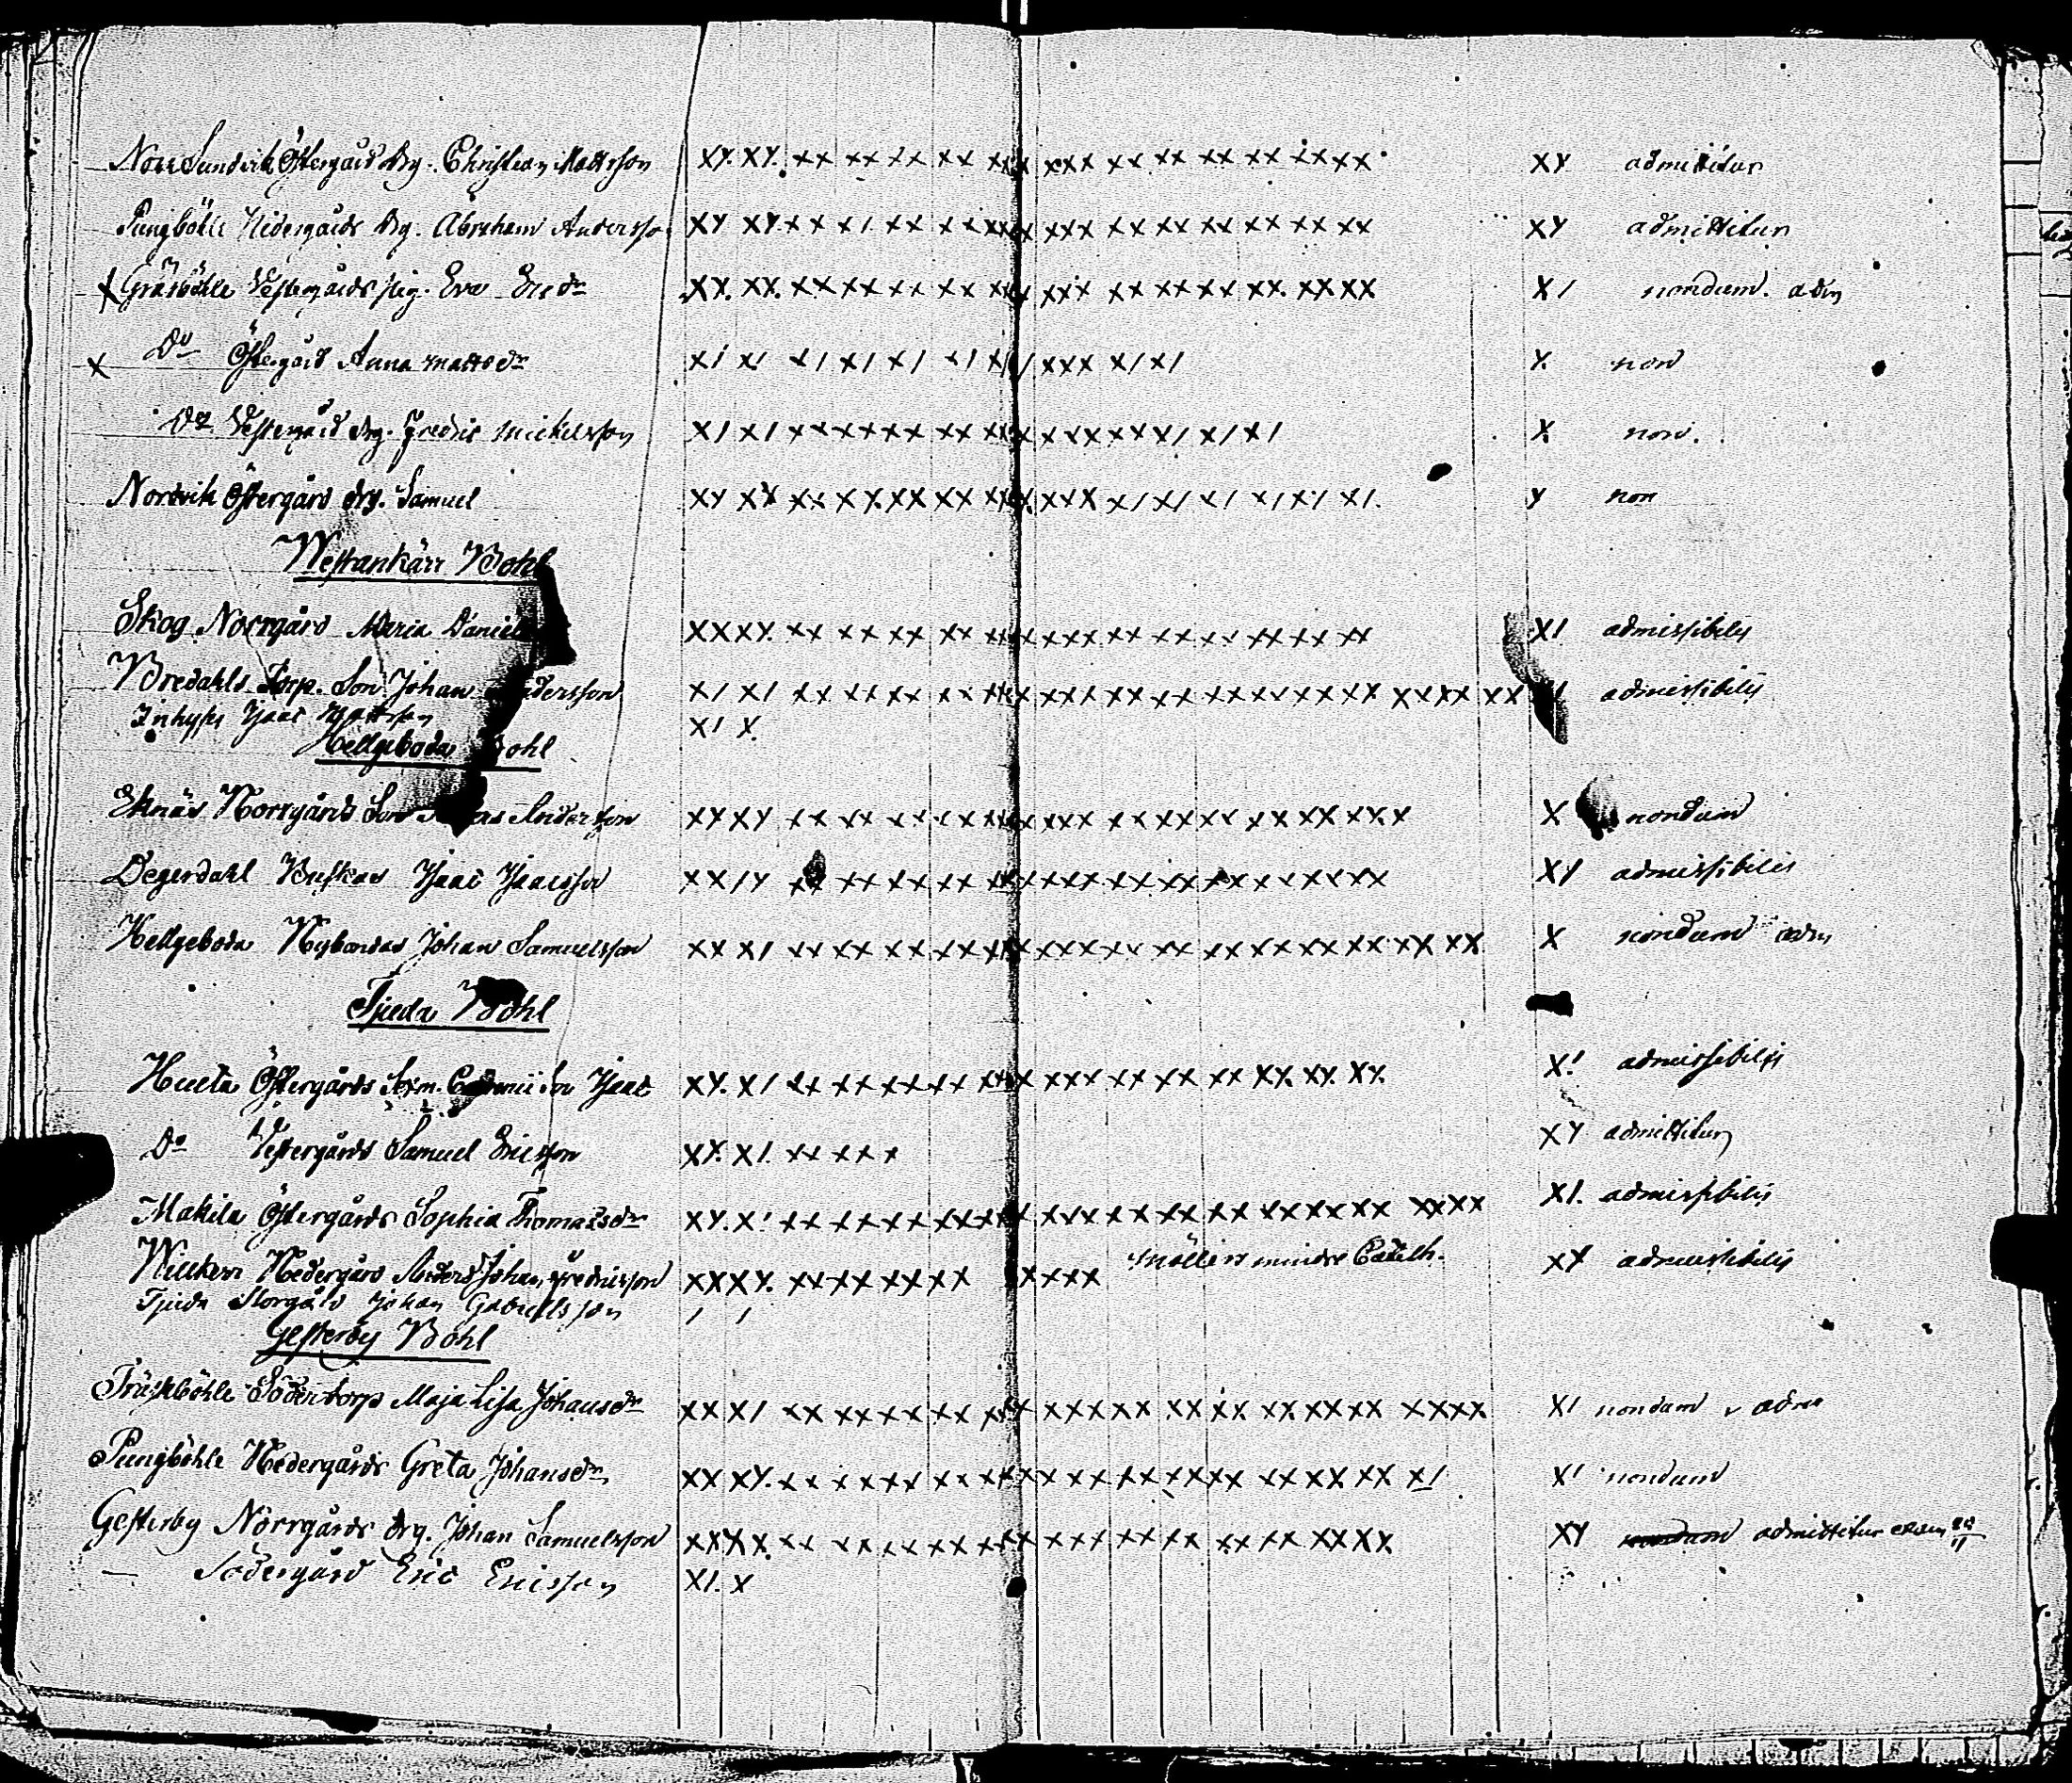 Norr Sundvik Östergård drg. Christian Mattsson XY. XY. xx xx xx xx xx xxx xx xx xx xx xx xx XY admittitur
Pungböhle Nidergårds drg. Abraham Andersso XY XY. xx x/ xx xx xx xxx xx xx xx xx xx xx XY admittitur
X Gräsböhle Vestergårds pig. Eva Ers dr XY. XY. xx xx xx xx xx xxx xx xx xx xx. xx xx X/ nondum. adm
X Do Östergård Anna Mattsdr x/ x/ x/ x/ x/ x/ x/ xxx x/ x/ X. non
Do Vestergård drg. Fredric Mickelsson x/ x/ xx xx xx xx xx xxx xx x/ x/ x/ X non.
Nordvik Östergård drg. Samuel XY XX xx xx xx xx xx xxx x/ x/ x/ x/ x/ x/. Y non
Westankärr Bohl
Skog Norrgård Maria Daniels XX XY. xx xx xx xx xx xxx xx xx xx xx xx xx X/ admissibilis
Bredahls Torp. Son Johan Andersson x/ x/ xx xx xx xx xx xxx xx xx xx xx xx xx xx xx xx admissibilis
Inhyses Isaac Mattsson x/ x.
Hellgeboda Bohl
Eknäs Norrgårds Son Andersson XY XY xx xx xx xx xx xxx xx xx xx xx xx xx.x X nondum
Degerdahl Buskas Isaac Isacsson XX /Y xx xx xx xx xx xxx xx xx xx xx xx xx XY admissibilis
Hellgeboda Nybondas Johan Samuelsson XX X/ xx xx xx xx xx xxx xx xx xx xx xx xx xx xx X nondum adm
Tjuda Bohl
Huelta Östergårds Son Isaac XY. X/ xx xx xx xx xx xxx xx xx xx xx. xx. xx. X! admissibilis
Do Vestergårds Samuel Ericsson XY. X/. xx xx x XY admittitur
Makila Östergårds Sophia Thomasdr XY. X! xx xx xx xx xx xxx xx xx xx xx xx xx xx xx X/. admissibilis
Wickeri Nedergård Anders Johan Fredricsson XX XY. xx xx xx xx xxxx Möllers mindre Catech. XX admissibilis
Tjuda Storgård Johan Gabrielsson / /
Gesterby Bohl
Träskböhle Södertorp Maja Lisa Johansdr XX X/ xx xx xx xx xx xxx xx xx xx xx xx xx xx xx X/ nondum adm
Pungböhle Nedergårds Greta Johansdr XX XY. xx xx xx xx xx xxx xx xx xx xx xx xx x/ X! nondum
Gesterby Norrgårds drg. Johan Samuelsson XX XX. xx xx xx xx xx xxx xx xx xx xx xx xx XY nondum admittitur
— Södergård Eric Ericsson X/. X